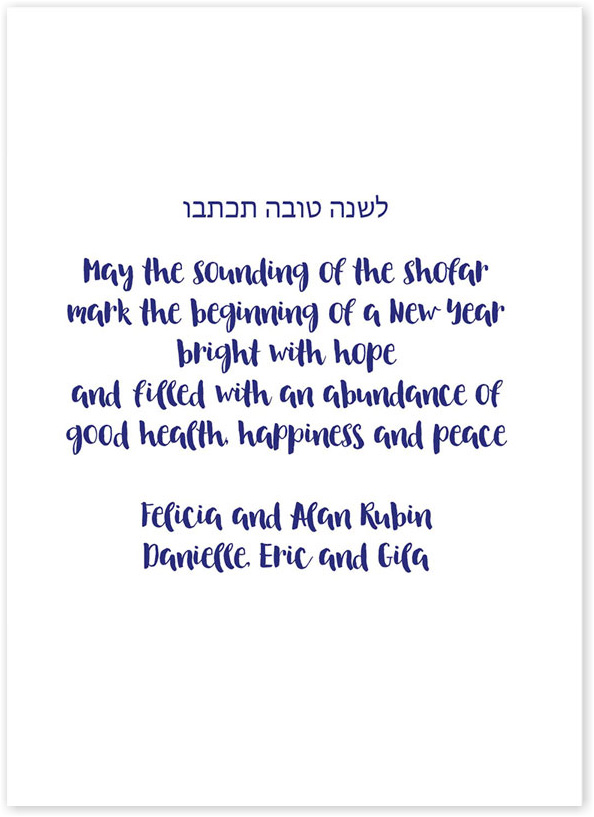 לשנה טובה תכתבו
May the sounding of the shofar
mark the beginning of a New Year
bright with hope
and filled with an abundance of
good health, happiness and peace
Felicia and Alan Rubin
Danielle, Eric and Gila